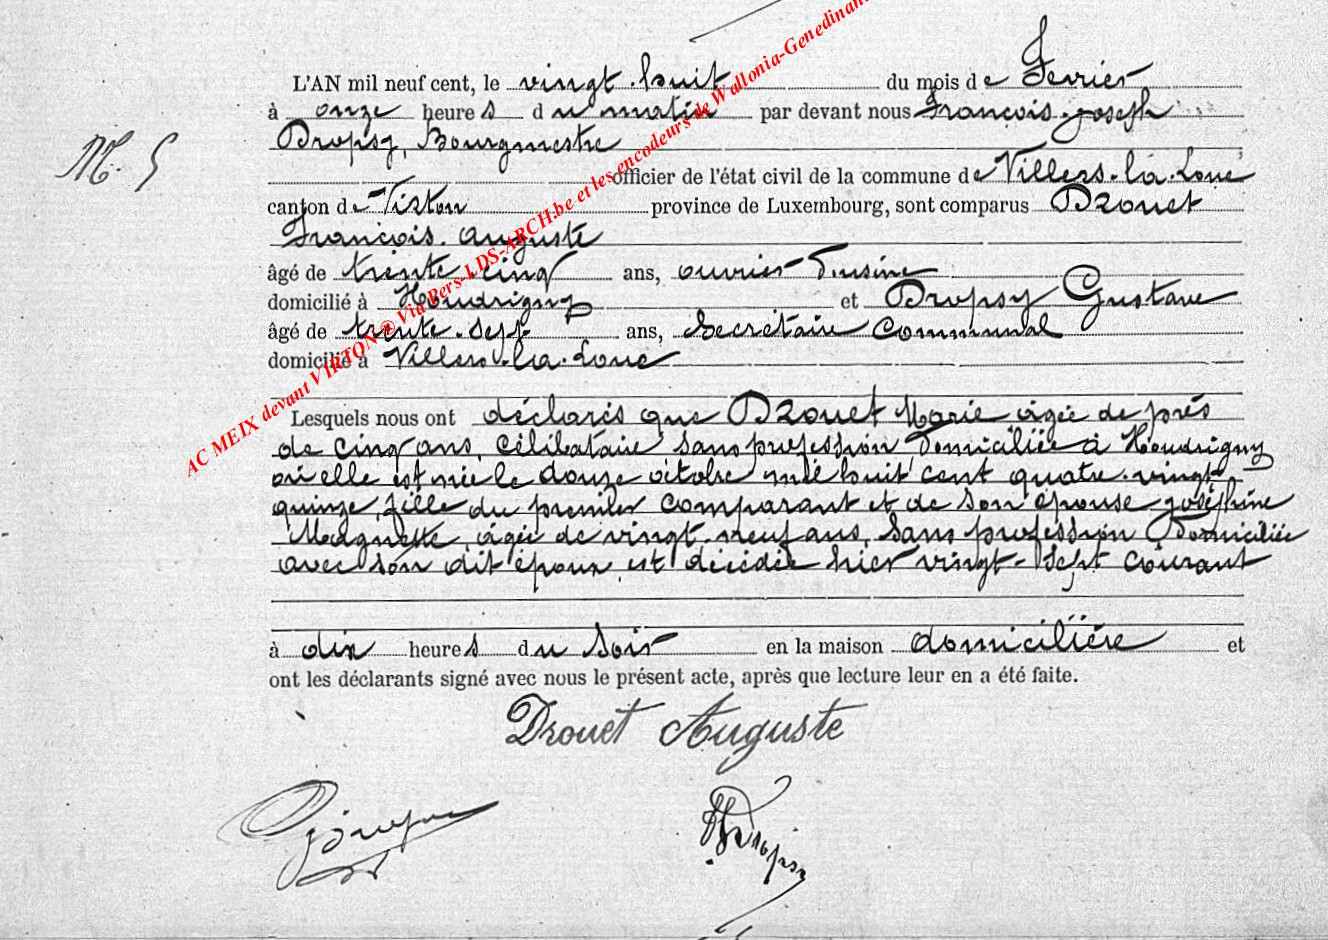 L'AN mil neuf cent, le vingt-huit du mois de Fevrier
à onze heures du matin par devant nous François-joseph
N. 5
Dropsy, Bourgmestre
officier de l'état civil de la commune de Villers-la-Loue
canton de Virton province de Luxembourg, sont comparus Drouet
François-auguste
âgé de trente-cinq ans, ouvrier d'usine
domicilié à Houdrigny et Dropsy Gustave
âgé de trente-sept ans, Secrétaire Communal
domicilié à Villers-la-Loue
Lesquels nous ont déclarés que Drouet Marie âgée de près
de cinq ans, célibataire, sans profession Domiciliée à Houdrigny
où elle est née le douze octobre mil huit cent quatre-vingt-
quinze, fille du premier comparant et de son épouse joséphine
Magnette, âgée de vingt-neuf ans, sans profession Domiciliée
avec son dit époux est décédée hier vingt-sept courant
à dix heures du soir en la maison domicilière et
ont les déclarants signé avec nous le présent acte, après que lecture leur en a été faite.
Drouet Auguste
AC MEIX devant VIRTON ® Via Bers-LDS-ARCH.be et les encodeurs de Wallonia-Genedinant